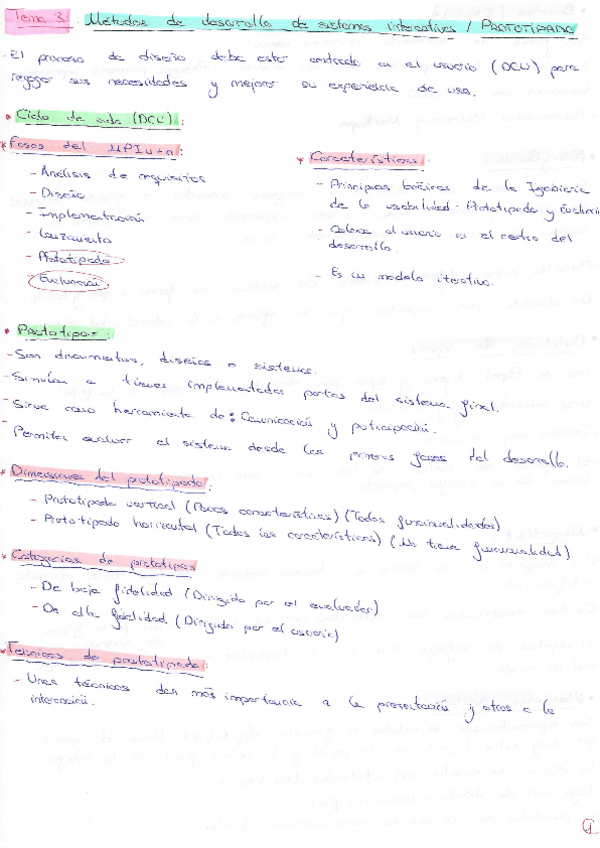 Tema 3: Métodos de desarrollo de sistemas interactivos / PROTOTIPADO
· El proceso de diseño debe estar centrado en el usuario (DCU) para
recoger sus necesidades y mejorar su experiencia de uso.
• Ciclo de vida (DCU):
* Fases del MPIu+a:
- Análisis de requisitos
- Diseño
- Implementación
- Lanzamiento
- Prototipado
- Evaluación
* Características:
- Principios básicos de la Ingeniería
de la usabilidad: Prototipado y
- Coloca al usuario en el centro del
desarrollo.
- Es un modelo iterativo.
• Prototipos:
- Son documentos, diseños o sistemas.
- Simulan o tienen implementadas partes del sistema final.
- Sirve como herramienta de: Comunicación y participación.
- Permiten evaluar el sistema desde las primeras fases del desarrollo.
* Dimensiones del prototipado:
- Prototipado vertical (Pocas características) (Todas funcionalidades)
- Prototipado horizontal (Todas las características) (No tiene funcionalidad)
* Categorías de prototipos
- De baja fidelidad (Dirigido por el evaluador)
- De alta fidelidad (Dirigido por el usuario)
* Técnicas de prototipado:
- Unas técnicas dan más importancia a la presentación y otras a la
interacción.